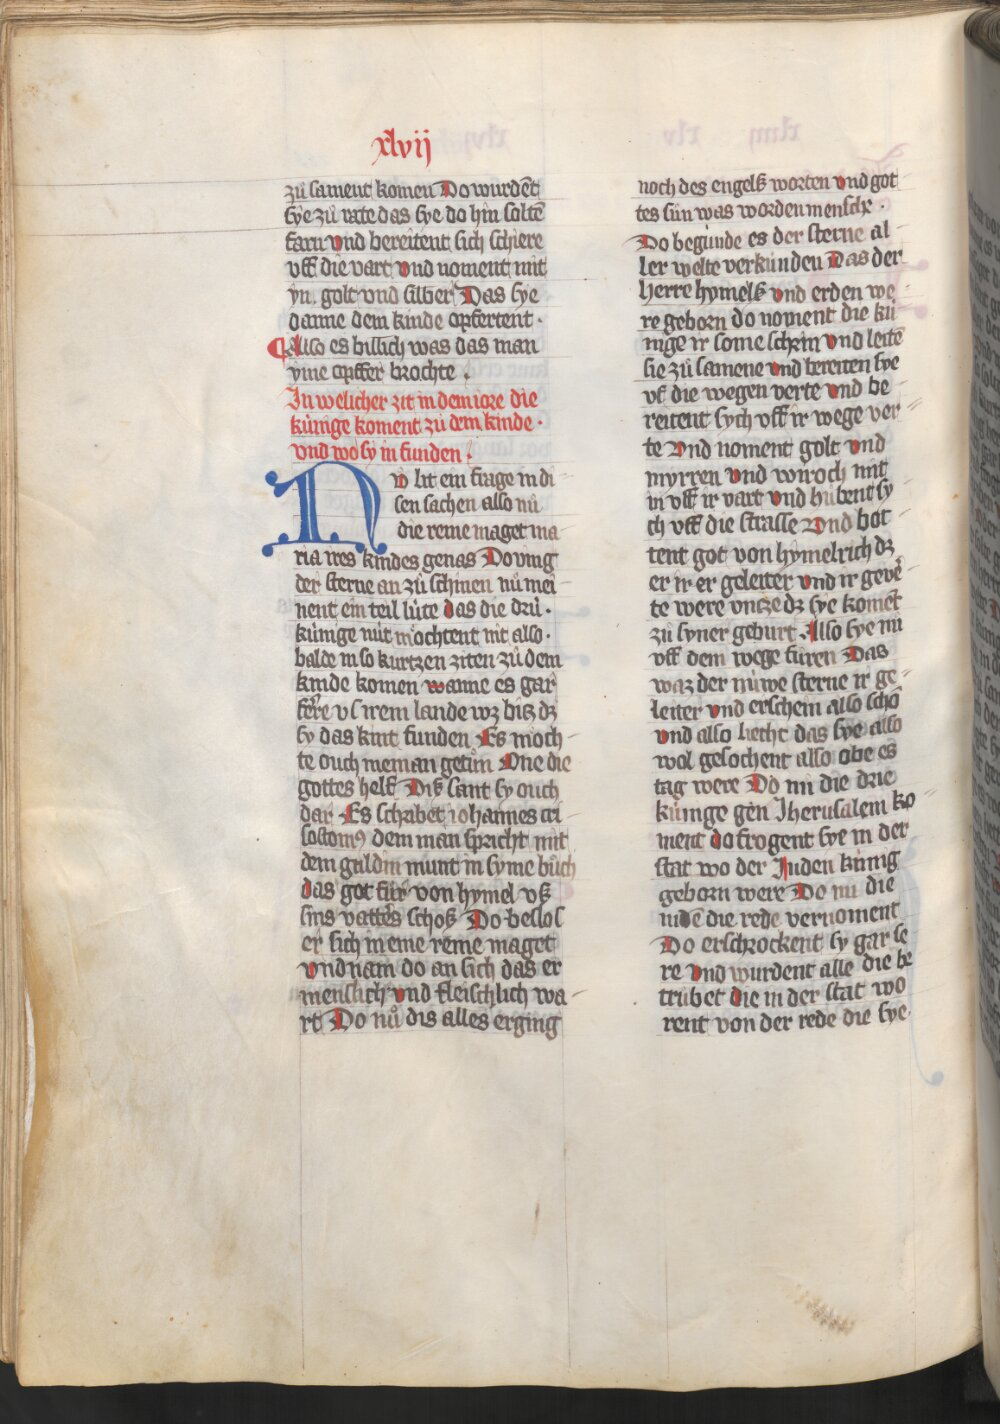 xlvij
zů sament komen Do wurdēt
sye zů rate das sye do hin soltē
farn vnd bereitent sich schiere
vff die vart vnd noment mit
yn. golt vnd silber Das sye
danne dem kinde opfertent.
Also es billich was das man
yme opffer brochte.
In welicher zit in dem iore die
künige koment zů dem kinde.
vnd wo sy in funden.
Nv lit ein frage in di
sen sachen also nů
die reine maget ma
ria ires kindes genas Do ving
der sterne an zů schinen nů mei
nent ein teil lüte das die drü.
künige nüt möchtent nit also.
balde in so kurtzen ziten zů dem
kinde komen wanne es gar
ferre vs irem lande wz bitz dz
sy das kint funden Es moch
te ouch nieman getůn One die
gottes helf Dis sant sy ouch
dar Es schribet iohannes cri
sostomꝰ dem man spricht mit
dem guldin munt in syme bůch
das got für von hymel vß
sins vatters schoß Do beslos
er sich in eine reine maget
vnd nam do an sich das er
menslich vnd fleischlich wa
rt Do nů dis alles erging
noch des engelß worten vnd got
tes sün was worden mensche.
Do begunde es der sterne al
ler welte verkünden Das der
herre hymelß vnd erden we
re geborn do noment die kü
nige ir some schrin vnd leitē
sie zů samene vnd bereiten sye
vf die wegen verte vnd be
reitent sych vff ir wege ver
te Vnd noment golt vnd
myrren vnd wiroch mit
in vff ir vart vnd hubent sy
ch vff die strasse Vnd bot
tent got von hymelrich dz
er ir er geleiter vnd ir gevē
te were vntze dz sye komēt
zů syner geburt Also sye nu
vff dem wege furen Das
waz der nuwe sterne ir ge
leiter vnd erschein also schō
vnd also liecht das sye also
wol gesochent also obe es
tag were Do nu die drie
künige gen Jherusalem ko
ment do frogent sye in der
stat wo der Juden künig
geborn were Do nu die
iudē die rede vernoment
Do erschrockent sy gar se
re vnd wurdent alle die be
trübet die in der stat wo
rent von der rede die sye